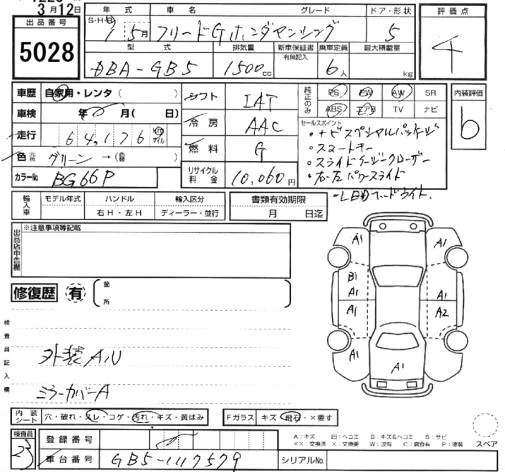 3月12日
出品番号
5028
年式 車名 グレード ドア・形状 評価点
S・H 5月 フリードGホンダセンシング 5 4
型式 排気量 新車保証書 乗車定員 最大積載量
有無記入
DBA-GB5 1500cc 6人 kg
車歴 自家用・レンタ( )
車検 年 月( 日)
走行 64,176
色 グリーン→( )
カラーNo BG66P
シフト IAT
冷房 AAC
燃料 G
リサイクル料金 10,060円
純正のみ PS PW AW SR
ABS エアB TV ナビ
内装評価
b
セールスポイント
・ナビスペシャルパッケージ
・スマートキー
・スライドイージークローザー
・左右パワースライド
・LEDヘッドライト
輸入車 モデル年式 ハンドル 輸入区分
右H・左H ディーラー・並行
書類有効期限
月 日迄
出品店申告欄
※注意事項等記載
修復歴 有( 箇所 )
検査員記入欄
外装AU
ミラーカバーA
A1 A1
B1
A1 A1 A1 A2
A1
A1 A1
A1
内装シート 穴・破れ・スレ・コゲ・汚れ・キズ・黄ばみ
Fガラス キズ・飛石・×要す
スペア
検査員
登録番号
車台番号 GB5-1117579
シリアルNo.
A:キズ U:ヘコミ B:キズ&ヘコミ S:サビ
XX:交換済 X:要交換 W:波有 C:腐食有 P:塗装